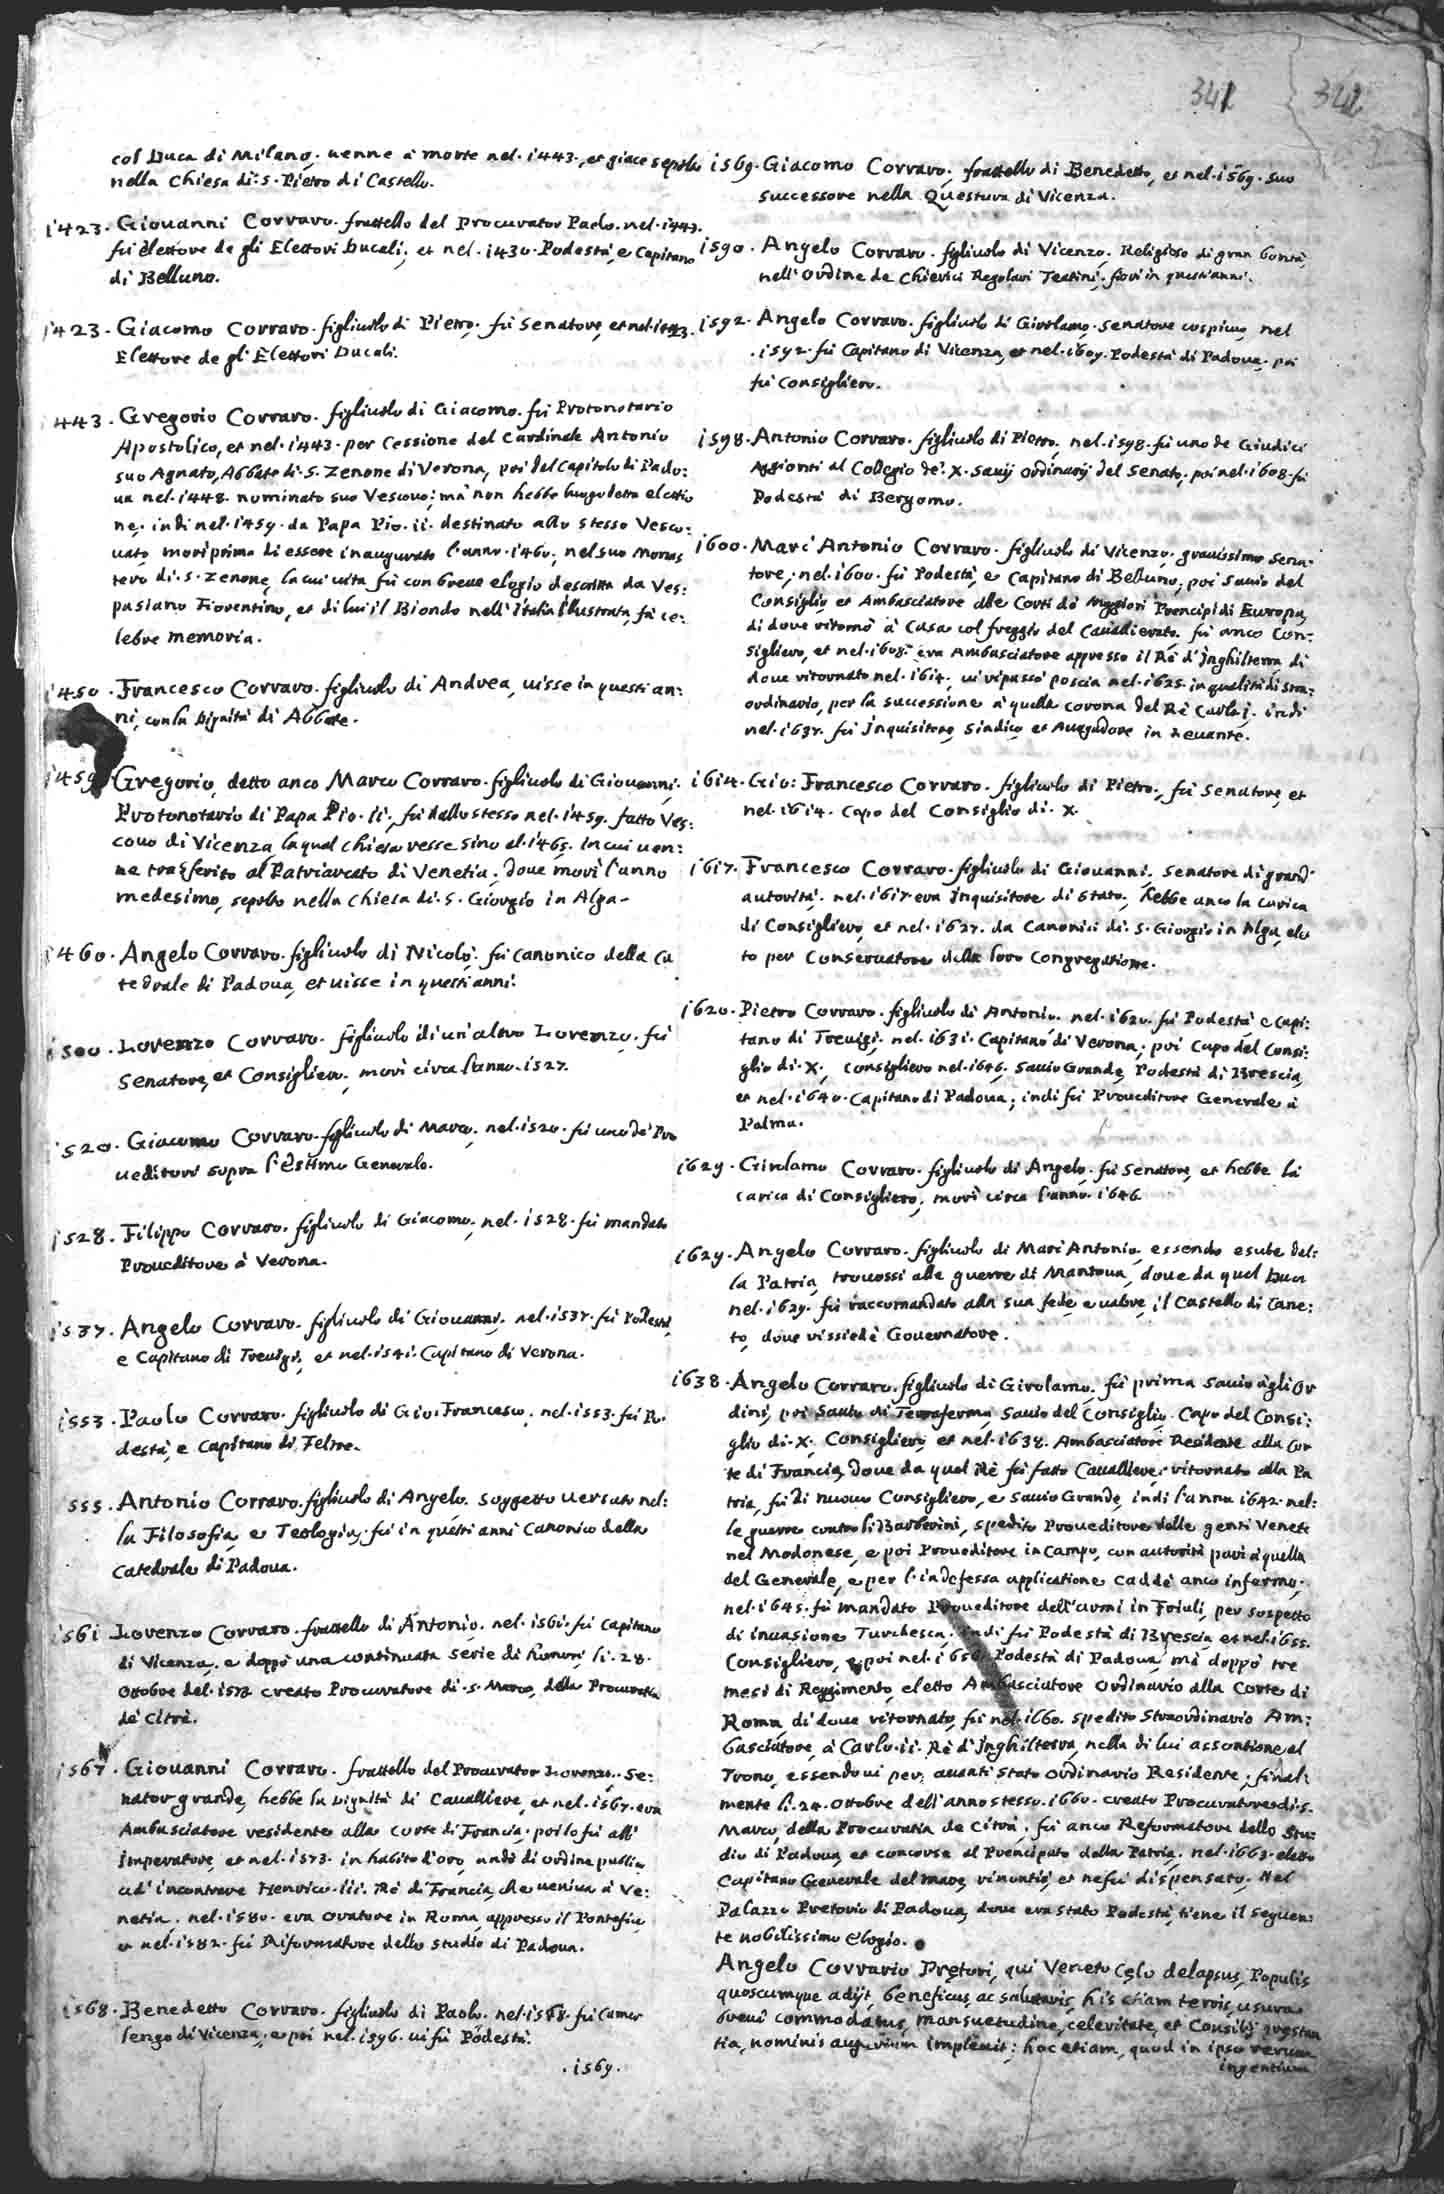 341 342
col Duca di Milano; uenne à morte nel·1443·, et giace sepolto
nella Chiesa di·S·Pietro di Castello.
1423· Giouanni Corraro· frattello del Procurator Paolo· nel·1443·
fù elettore de gli Elettori Ducali; et nel·1430·Podestà, e Capitano
di Belluno.
1423· Giacomo Corraro· figliuolo di Pietro· fù Senatore, et nel·1423·
Elettore de gli Elettori Ducali.
1443· Gregorio Corraro· figliuolo di Giacomo· fù Protonotario
Apostolico, et nel·1443· per Cessione del Cardinale Antonio
suo Agnato, Abbate di·S·Zenone di Verona, poi del Capitolo di Pado:
ua nel·1448· nominato suo Vescouo; mà non hebbe luogo detta elettio
ne; indi nel·1459· da Papa Pio·ii· destinato allo stesso Vesco:
uato morì prima di essere inaugurato l'anno·1460· nel suo Monas
tero di·S·Zenone, la cui uita fù con breue elogio descritta da Ves:
pasiano Fiorentino, et di lui il Biondo nell'Italia Illustrata, fà ce:
lebre memoria.
1450· Francesco Corraro· figliuolo di Andrea, uisse in questi an:
ni, con la Dignità di Abbate.
1459 Gregorio, detto anco Marco Corraro· figliuolo di Giouanni·
Protonotario di Papa Pio·ii·, fù dallo stesso nel·1459· fatto Ves:
couo di Vicenza, la qual Chiesa resse sino al·1465· in cui uen:
ne trasferito al Patriarcato di Venetia; doue morì l'anno
medesimo, sepolto nella chiesa di·S·Giorgio in Alga.
1460· Angelo Corraro· figliuolo di Nicolò· fù Canonico della Ca
tedrale di Padoua, et uisse in questi anni.
1500· Lorenzo Corraro· figliuolo di un'altro Lorenzo· fù
Senatore, et Consigliero; morì circa l'anno·1527.
1520· Giacomo Corraro· figliuolo di Marco· nel·1520· fù uno de' Pro
ueditori sopra l'Estimo Generale.
1528· Filippo Corraro· figliuolo di Giacomo· nel·1528· fù mandato
Proueditore à Verona.
1537· Angelo Corraro· figliuolo di Giouanni· nel·1537· fù Podestà,
e Capitano di Treuigi, et nel·1541· Capitano di Verona.
1553· Paolo Corraro· figliuolo di Gio: Francesco· nel·1553· fù Po
destà, e Capitano di Feltre.
555· Antonio Corraro· figliuolo di Angelo· soggetto uersato nel:
la Filosofia, e Teologia; fù in questi anni Canonico della
Catedrale di Padoua.
1561 Lorenzo Corraro· frattello di Antonio· nel·1561· fù Capitano
di Vicenza; e doppò una continuata serie di honori li·28·
Ottobre del·1573 creato Procuratore di·S·Marco, della Procuratia
de Citrà.
1567· Giouanni Corraro· frattello del Procurator Lorenzo· Se:
nator grande, hebbe la Dignità di Cauallière, et nel·1567· era
Ambasciatore residente alla Corte di Francia; poi lo fù all'
Imperatore, et nel·1573· in habito d'oro andò di ordine publico
ad' incontrare Henrico·iii· Rè di Francia, che ueniua à Ve:
netia; nel·1580· era Oratore in Roma, appresso il Pontefice
et nel·1582· fù Riformatore dello Studio di Padoua.
1568· Benedetto Corraro· figliuolo di Paolo· nel·1568· fù Camer
lengo di Vicenza, e poi nel·1596· ui fù Podestà.
·1569·
1569· Giacomo Corraro· frattello di Benedetto, et nel·1569· suo
successore nella Questura di Vicenza.
1590· Angelo Corraro· figliuolo di Vicenzo· Religioso di gran bontà,
nell'Ordine de Chierici Regolari Teatini; fiorì in questi anni.
1592· Angelo Corraro· figliuolo di Girolamo· Senatore cospicuo, nel
·1592· fù Capitano di Vicenza, et nel·1609· Podestà di Padoua; poi
fù Consigliero.
1598· Antonio Corraro· figliuolo di Pietro· nel·1598· fù uno de Giudici
Aggionti al Collegio de'·X·Sauij ordinarij del Senato; poi nel·1608· fù
Podestà di Bergamo.
1600· Marc'Antonio Corraro· figliuolo di Vicenzo· grauissimo Sena:
tore; nel·1600· fù Podestà, e Capitano di Belluno; poi Sauio del
Consiglio et Ambasciatore alle Corti de maggiori Prencipi di Europa,
di doue ritornò à Casa col freggio del Caualierato· fù anco Con:
sigliero, et nel·1608· era Ambasciatore appresso il Rè d'Inghilterra di
doue ritornato nel·1614· ui ripassò poscia nel·1625· in qualità di stra:
ordinario, per la successione à quella corona del Rè Carlo j· indi
nel·1637· fù Inquisitore, Sindico, et Auogadore in Leuante.
1614· Gio: Francesco Corraro· figliuolo di Pietro·, fù Senatore, et
nel·1614· Capo del Consiglio di·X·
1617· Francesco Corraro· figliuolo di Giouanni· Senatore di grand'
autorità; nel·1617 era Inquisitore di Stato; hebbe anco la carica
di Consigliero, et nel·1627· da Canonici di·S·Giorgio in Alga, elet
to per Conseruatore della loro Congregatione.
1620· Pietro Corraro· figliuolo di Antonio· nel·1620· fù Podestà e Capi:
tano di Treuigi; nel·1631· Capitano di Verona; poi Capo del Consi:
glio di·X·, Consigliero nel·1646· Sauio Grande, Podestà di Brescia,
et nel·1640· Capitano di Padoua; indi fù Proueditore Generale à
Palma.
1629· Girolamo Corraro· figliuolo di Angelo· fù Senatore, et hebbe la
carica di Consigliero; morì circa l'anno·1646
1629· Angelo Corraro· figliuolo di Marc'Antonio· essendo esule del:
la Patria, trouossi alle guerre di Mantoua, doue da quel Duca
nel·1629· fù raccomandato alla sua fede, e ualore, il Castello di Cane:
to, doue rissiedè Gouernatore.
1638· Angelo Corraro· figliuolo di Girolamo· fù prima Sauio à gli Or
dini, poi Sauio di Terraferma, Sauio del Consiglio· Capo del Consi:
glio di·X· Consigliero, et nel·1638· Ambasciatore Residente alla Cor
te di Francia, doue da quel Rè fù fatto Cauallière; ritornato alla Pa
tria, fù di nuouo Consigliero, e Sauio Grande, indi l'anno 1642· nel:
le guerre contro li Barberini, spedito Proueditore delle genti Venete
nel Modonese, e poi Proueditore in Campo, con autorità pari à quella
del Generale, e per l'indefessa applicatione caddè anco infermo·
nel·1645· fù mandato Proueditore dell'armi in Friuli, per sospetto
di inuasione Turchesca; indi fù Podestà di Brescia, et nel·1655·
Consigliero, e poi nel·1656 Podestà di Padoua, mà doppò tre
mesi di Reggimento, eletto Ambasciatore Ordinario alla Corte di
Roma, di doue ritornato, fù nel·1660· spedito Straordinario Am:
basciatore, à Carlo·ii· Rè d'Inghilterra, nella di lui assontione al
Trono, essendoui per auanti stato Ordinario Residente; final:
mente li·24· Ottobre dell'anno stesso·1660· creato Procuratore di·S·
Marco, della Procuratia de Citrà; fù anco Reformatore dello Stu:
dio di Padoua, et concorse al Prencipato della Patria; nel·1663· eletto
Capitano Generale del mare, rinontiò, et ne fù dispensato· Nel
Palazzo Pretorio di Padoua, doue era stato Podestà, tiene il seguen:
te nobilissimo elogio.
Angelo Corrario Pretori, qui Veneto Celo delapsus, Populis
quoscumque adijt, beneficus, ac salutaris, his etiam terris, usura
breui commodatus, mansuetudine, celeritate, et Consilij prestan
tia, nominis augurium impleuit; hoc etiam, quod in ipso rerum
ingentium